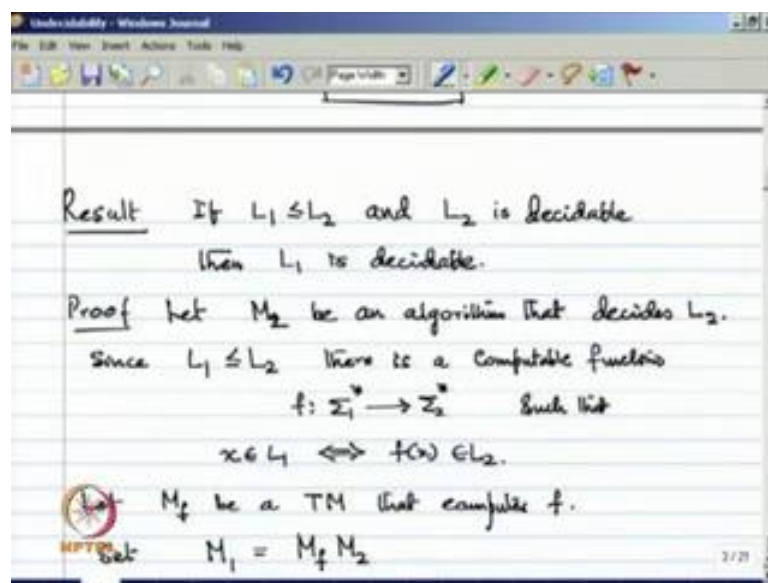 Undecidability - Windows Journal
File Edit View Insert Actions Tools Help
Page Width
Result If L₁ ≤ L₂ and L₂ is decidable
then L₁ is decidable.
Proof Let M₂ be an algorithm that decides L₂.
Since L₁ ≤ L₂ there is a Computable function
f: Σ₁* → Σ₂* Such that
x ∈ L₁ ⇔ f(x) ∈ L₂.
Let M_f be a TM that computes f.
NPTEL
Set M₁ = M_f M₂